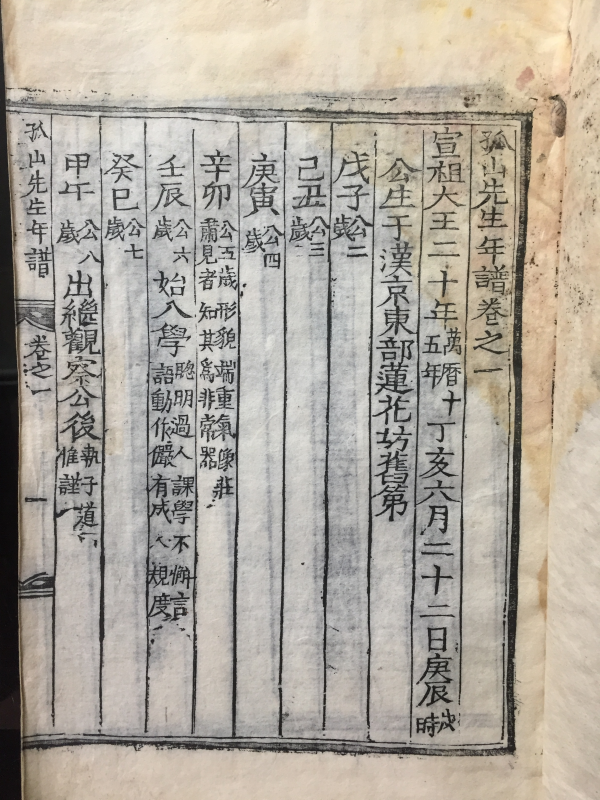 孤山先生年譜卷之一
宣祖大王二十年萬曆十五年丁亥六月二十二日庚辰戌時
公生于漢京東部蓮花坊舊第
戊子公二歲
己丑公三歲
庚寅公四歲
辛卯公五歲形貌端重氣像莊肅見者知其爲非常器
壬辰公六歲始入學聰明過人課學不懈言語動作儼有成人規度
癸巳公七歲
甲午公八歲出繼觀察公後執子道惟謹
孤山先生年譜 卷之一 一